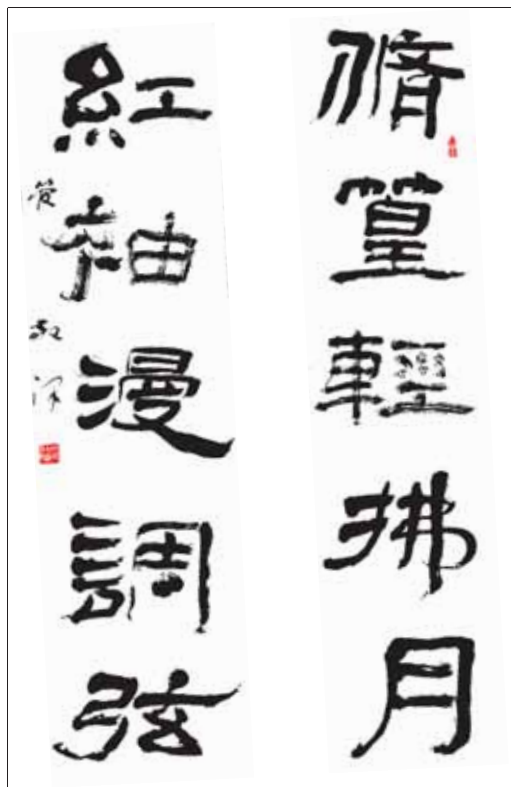 脩篁輕拂月
紅袖漫調弦